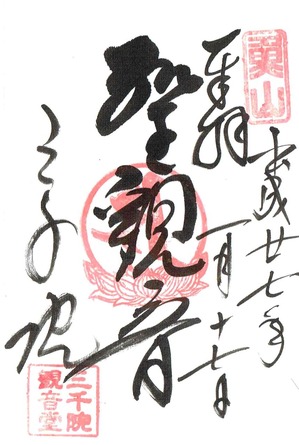 魚山
平成廿七年
奉拝
一月十七日
聖觀音
三千院
三千院
觀音堂